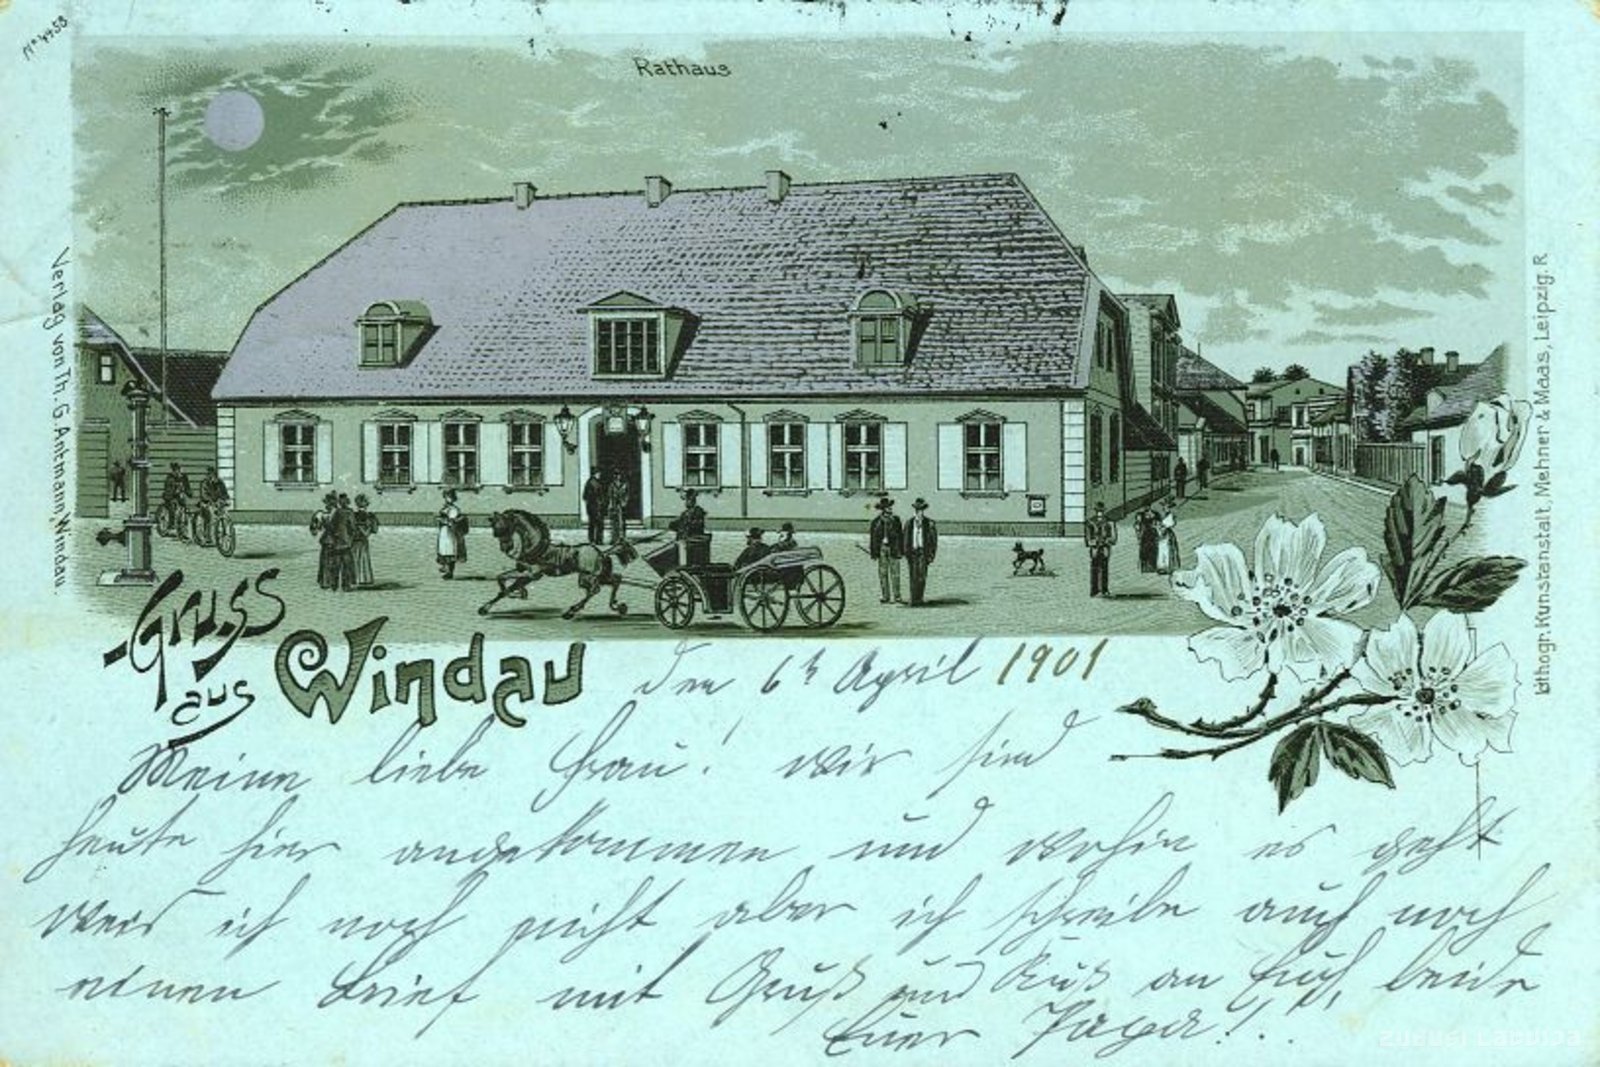 No 4453
Rathaus
Verlag von Th. G. Antmann, Windau.
Lithogr. Kunstanstalt, Mehner & Maas, Leipzig. R
Gruss
aus Windau
den 6ten April 1901
Meine liebe Frau! Wir sind
heute hier angekommen und wohin es geht
weis ich noch nicht aber ich schreibe auch noch
einen Brief mit Gruß und Kuß an Euch beide
Euer Papa!!
ZUDUSI LATVIJA